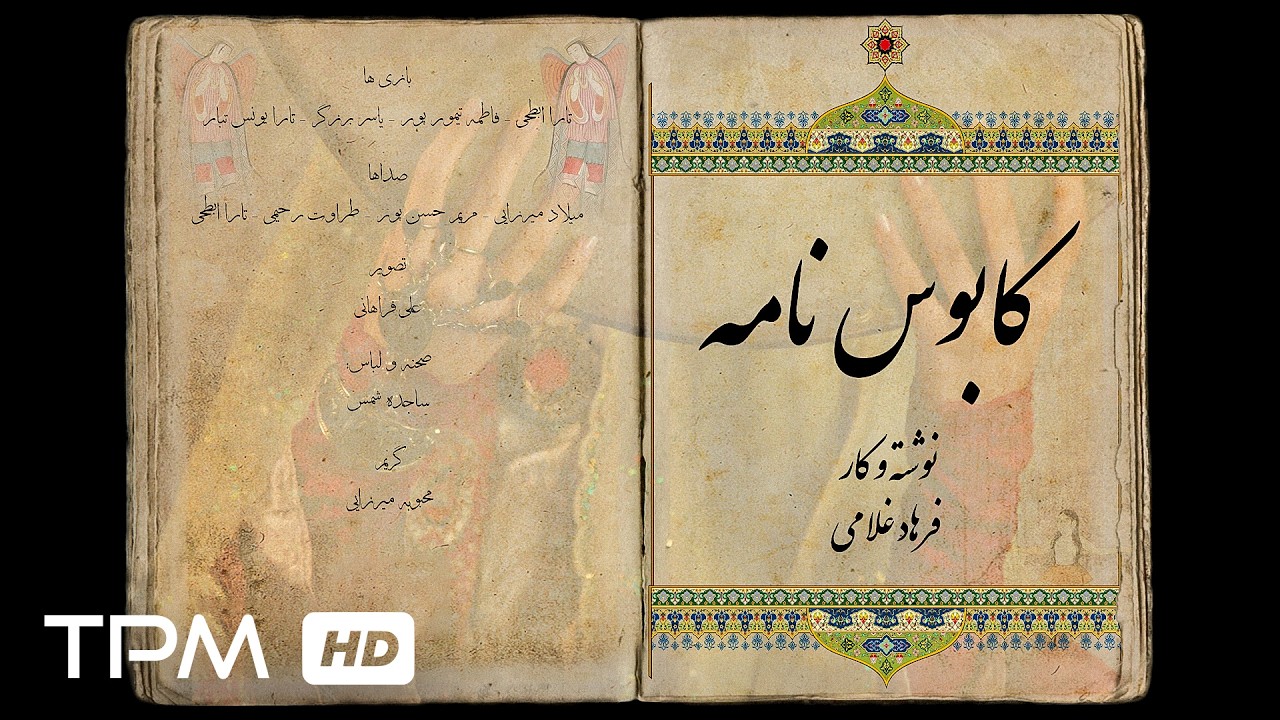 کابوس نامه
نوشته و کار
فرهاد غلامی
بازی ها
تارا ابطحی - فاطمه تیمور پور - یاسر برزگر - تارا یونس تبار
صداها
میلاد میرزایی - مریم حسن پور - طراوت رحیمی - تارا ابطحی
تصویر
علی فراهانی
صحنه و لباس:
ساجده شمس
گریم
محبوبه میرزایی
TPM HD